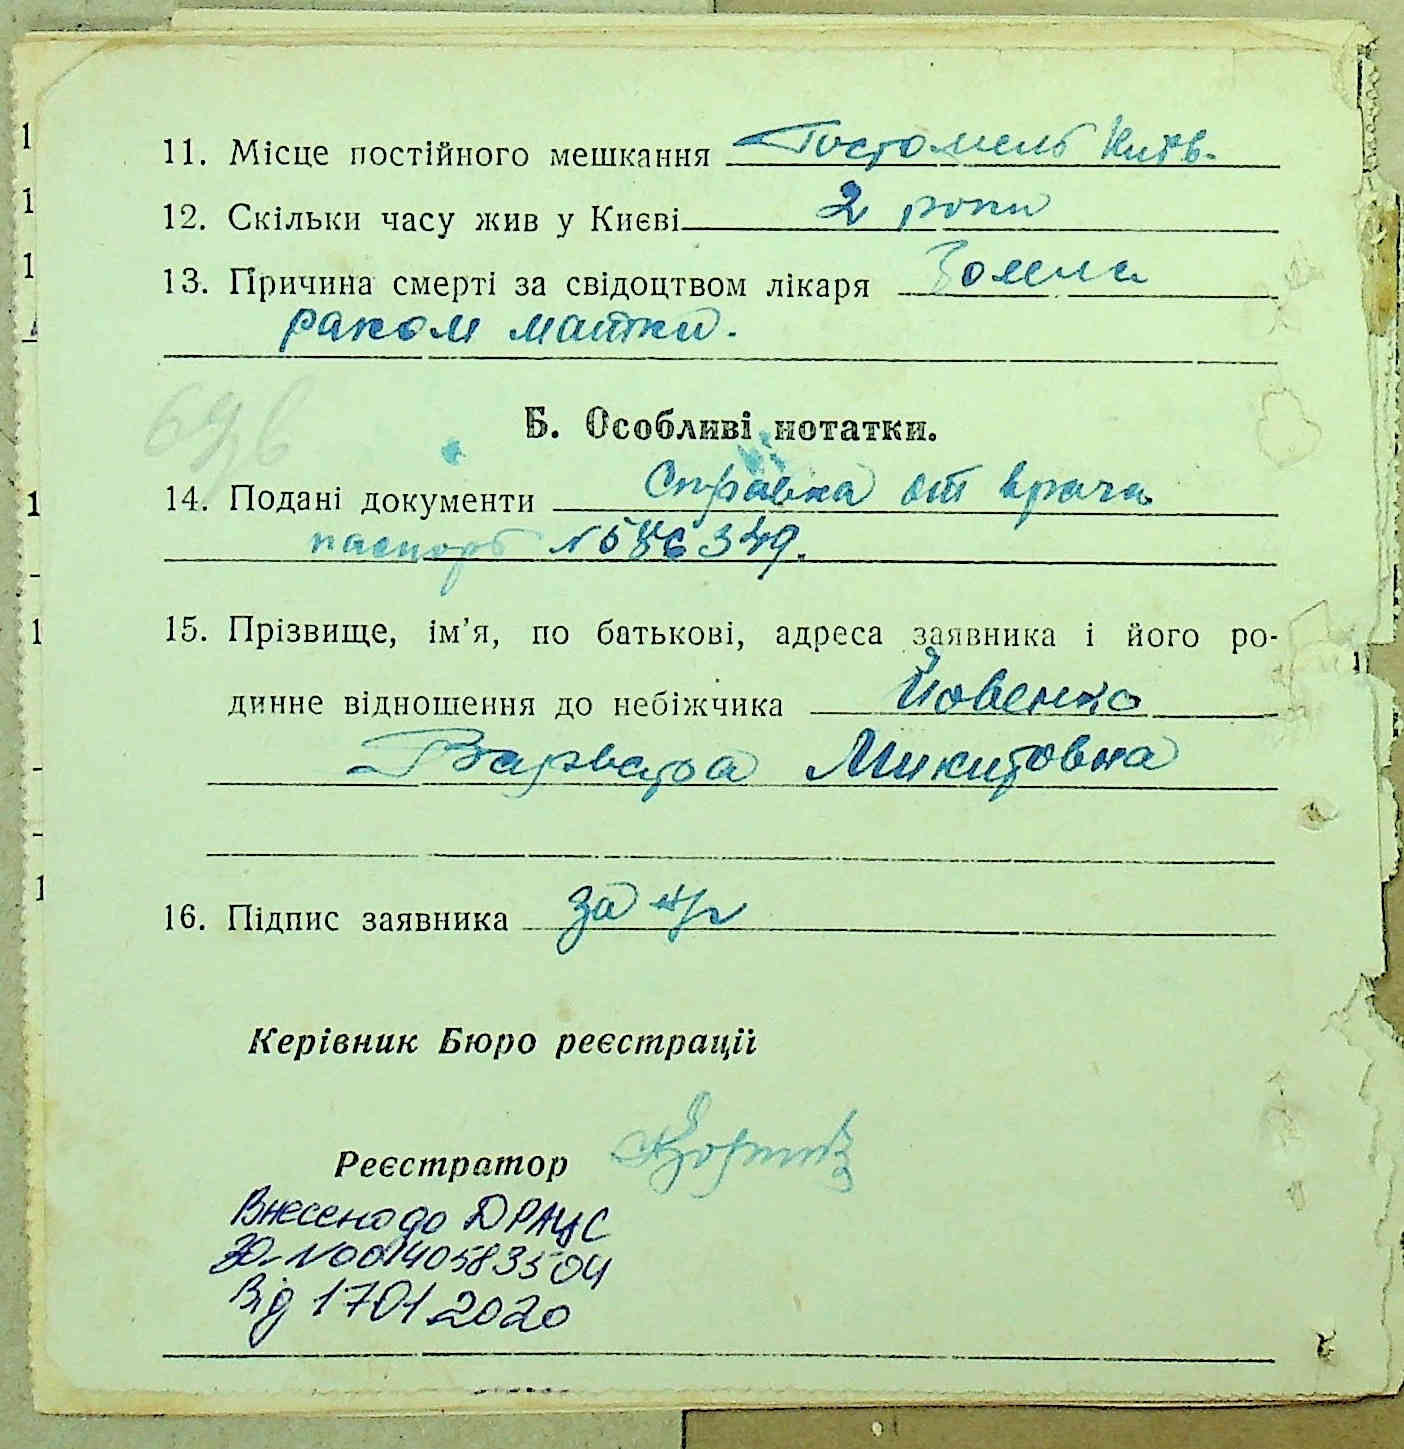 11. Місце постійного мешкання Гостомель Київ.
12. Скільки часу жив у Києві 2 роки
13. Причина смерті за свідоцтвом лікаря
раком матки.
Б. Особливі нотатки.
14. Подані документи Справка от врача
паспорт №
15. Прізвище, ім’я, по батькові, адреса заявника і його ро-
динне відношення до небіжчика Йовенко
Варвара Микитовна
16. Підпис заявника за
Керівник Бюро реєстрації
Реєстратор
Внесено до ДРАЦС
№00140583504
Від 17 01 2020